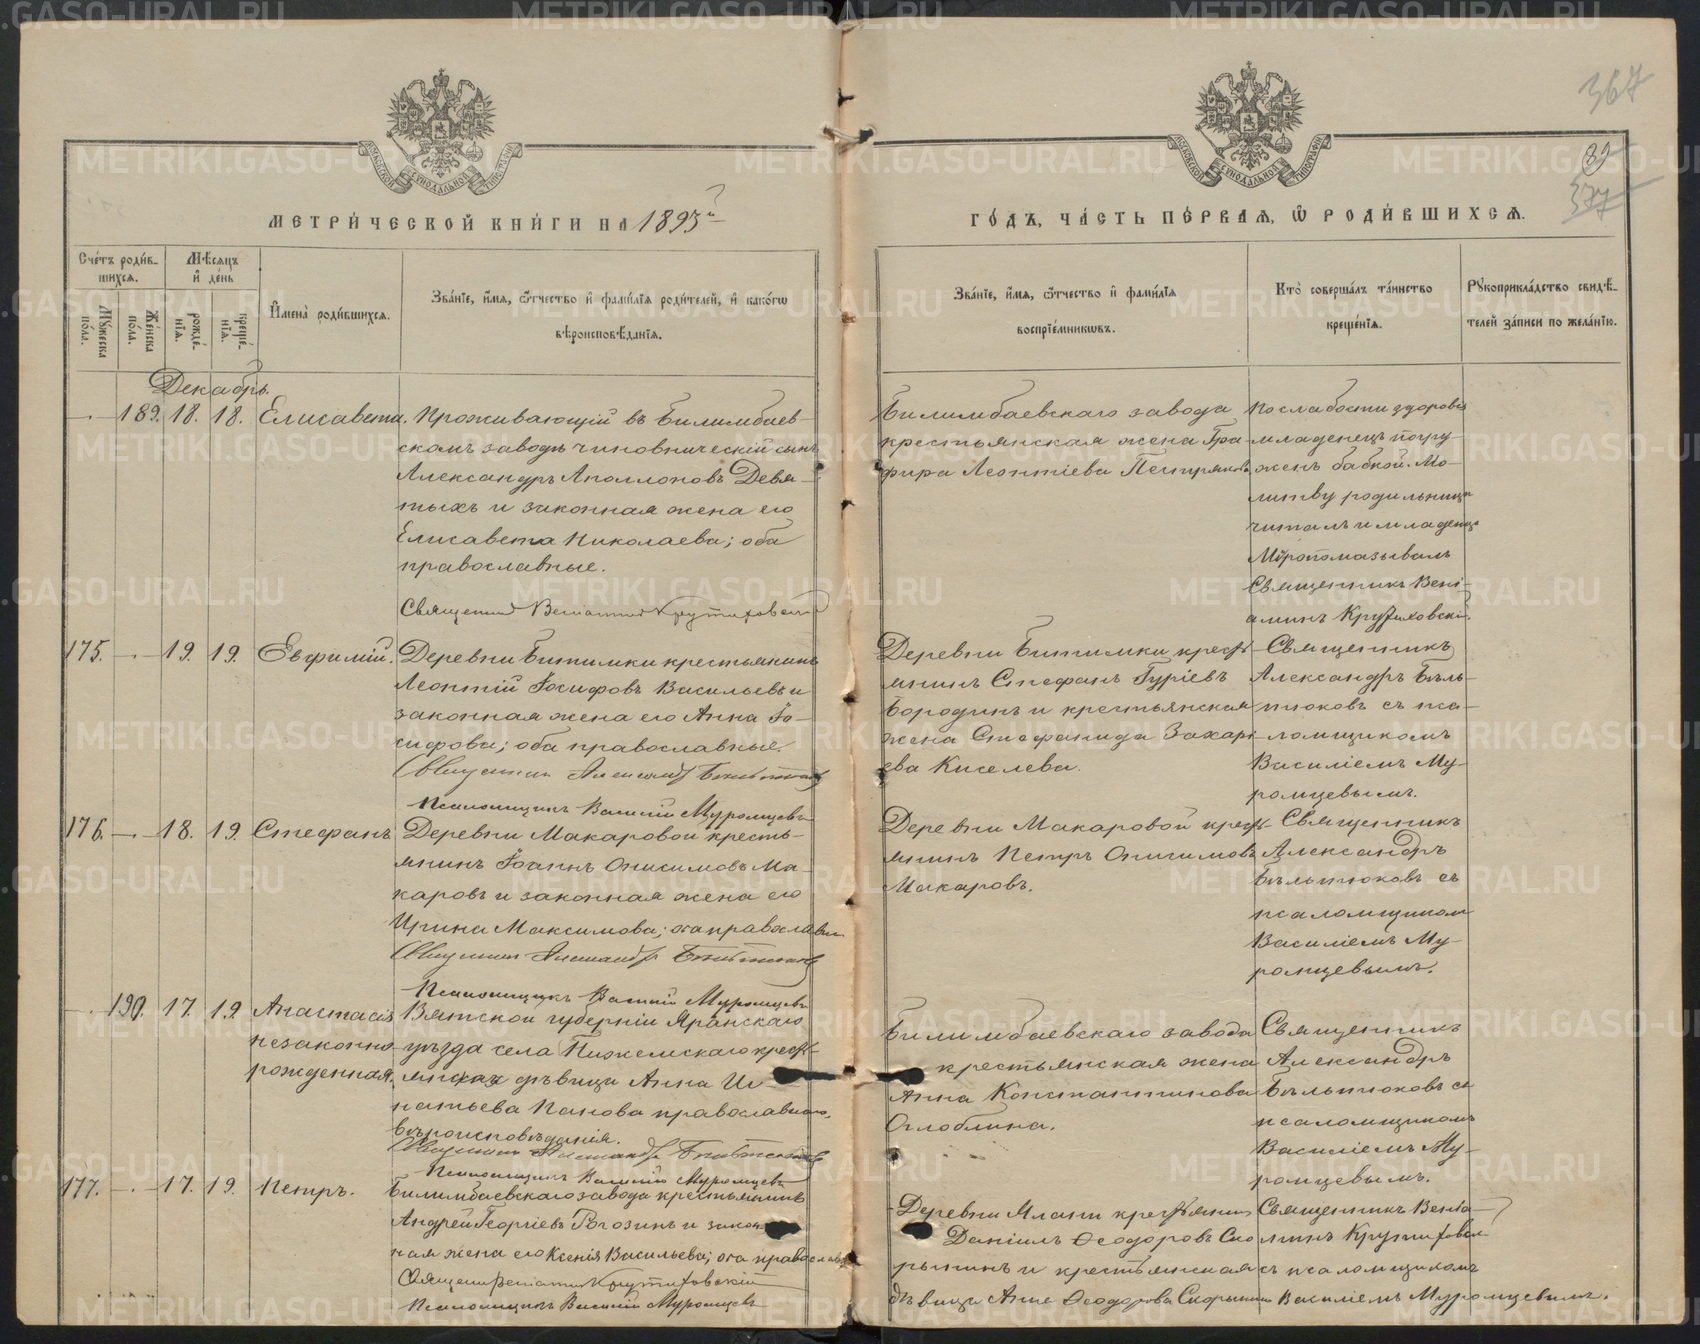 367
89
377
МОСКОВСКОЙ СѴНОДАЛЬНОЙ ТИПОГРАФІИ
МОСКОВСКОЙ СѴНОДАЛЬНОЙ ТИПОГРАФІИ
МЕТРИ́ЧЕСКОЙ КНИ́ГИ НА 1893й
ГО́ДЪ, ЧА́СТЬ ПЕ́РВАЯ, Ѽ РОДИ́ВШИХСѦ.
Сче́тъ роди́в-
шихсѧ.
Мѣсѧцъ
и҆ де́нь
Мꙋ́жеска
по́ла.
Же́нска
по́ла.
рожде́-
нїѧ.
креще́-
нїѧ.
И҆мена̀ роди́вшихсѧ.
Зва́нїе, и҆́мѧ, ѻ҆́тчество и҆ фами́лїѧ роди́телей, и҆ како́гѡ
вѣроисповѣ́данїѧ.
Зва́нїе, и҆́мѧ, ѻ҆́тчество и҆ фами́лїѧ
воспрїе́мникѡвъ.
Кто̀ соверша́лъ та́инство
креще́нїѧ.
Рꙋкоприкла́дство свидѣ́-
телей за́писи по жела́нїю.
Декабрь.
189. 18. 18. Елисавета. Проживающій въ Билимбаев-
скомъ заводѣ чиновническій сынъ
Александръ Аполлоновъ Девя-
тыхъ и законная жена его
Елисавета Николаева; оба
православные.
Священникъ Веніаминъ Крутиховскій
Билимбаевскаго завода
крестьянская жена Гра-
фира Леонтіева
По слабости здоровья
младенецъ погру-
женъ бабкой. Мо-
литву родильницѣ
читалъ и младенца
Мѵропомазывалъ
Священникъ Вені-
аминъ Крутиховскій.
175. 19. 19. Евфимій. Деревни Битимки крестьянинъ
Леонтій Іосифовъ Васильевъ и
законная жена его Анна Іо-
сифова; оба православные.
Священникъ Александръ Бѣльтюковъ
Псаломщикъ Василій Муромцевъ
Деревни Битимки кресть-
янинъ Стефанъ Гуріевъ
Бородинъ и крестьянская
жена Стефанида Захарі-
ева Киселева.
Священникъ
Александръ Бѣль-
тюковъ съ пса-
ломщикомъ
Василіемъ Му-
ромцевымъ.
176. 18. 19. Стефанъ. Деревни Макаровой кресть-
янинъ Іоаннъ Онисимовъ Ма-
каровъ и законная жена его
Ирина Максимова; оба православн.
Священникъ Александръ Бѣльтюковъ
Псаломщикъ Василій Муромцевъ
Деревни Макаровой кресть-
янинъ Петръ Онисимовъ
Макаровъ.
Священникъ
Александръ
Бѣльтюковъ съ
псаломщикомъ
Василіемъ Му-
ромцевымъ.
190. 17. 19. Анастасія
незаконно-
рожденная.
Вятской губерніи Яранскаго
уѣзда села Пижемскаго кресть-
янская дѣвица Анна Иг-
натьева Панова православнаго
вѣроисповѣданія.
Священникъ Александръ Бѣльтюковъ
Псаломщикъ Василій Муромцевъ
Билимбаевскаго завода
крестьянская жена
Анна Константинова
Оглоблина.
Священникъ
Александръ
Бѣльтюковъ съ
псаломщикомъ
Василіемъ Му-
ромцевымъ.
177. 17. 19. Петръ. Билимбаевскаго завода крестьянинъ
Андрей Георгіевъ Рогозинъ и закон-
ная жена его Ксенія Васильева; оба православн.
Священникъ Веніаминъ Крутиховскій
Псаломщикъ Василій Муромцевъ
Деревни Млани крестьянинъ
Даніилъ Ѳеодоровъ Ско-
рынинъ и крестьянская
дѣвица Анна Ѳеодорова Скорынина
Священникъ Веніа-
минъ Крутиховскій
съ псаломщикомъ
Василіемъ Муромцевымъ.
METRIKI.GASO-URAL.RU